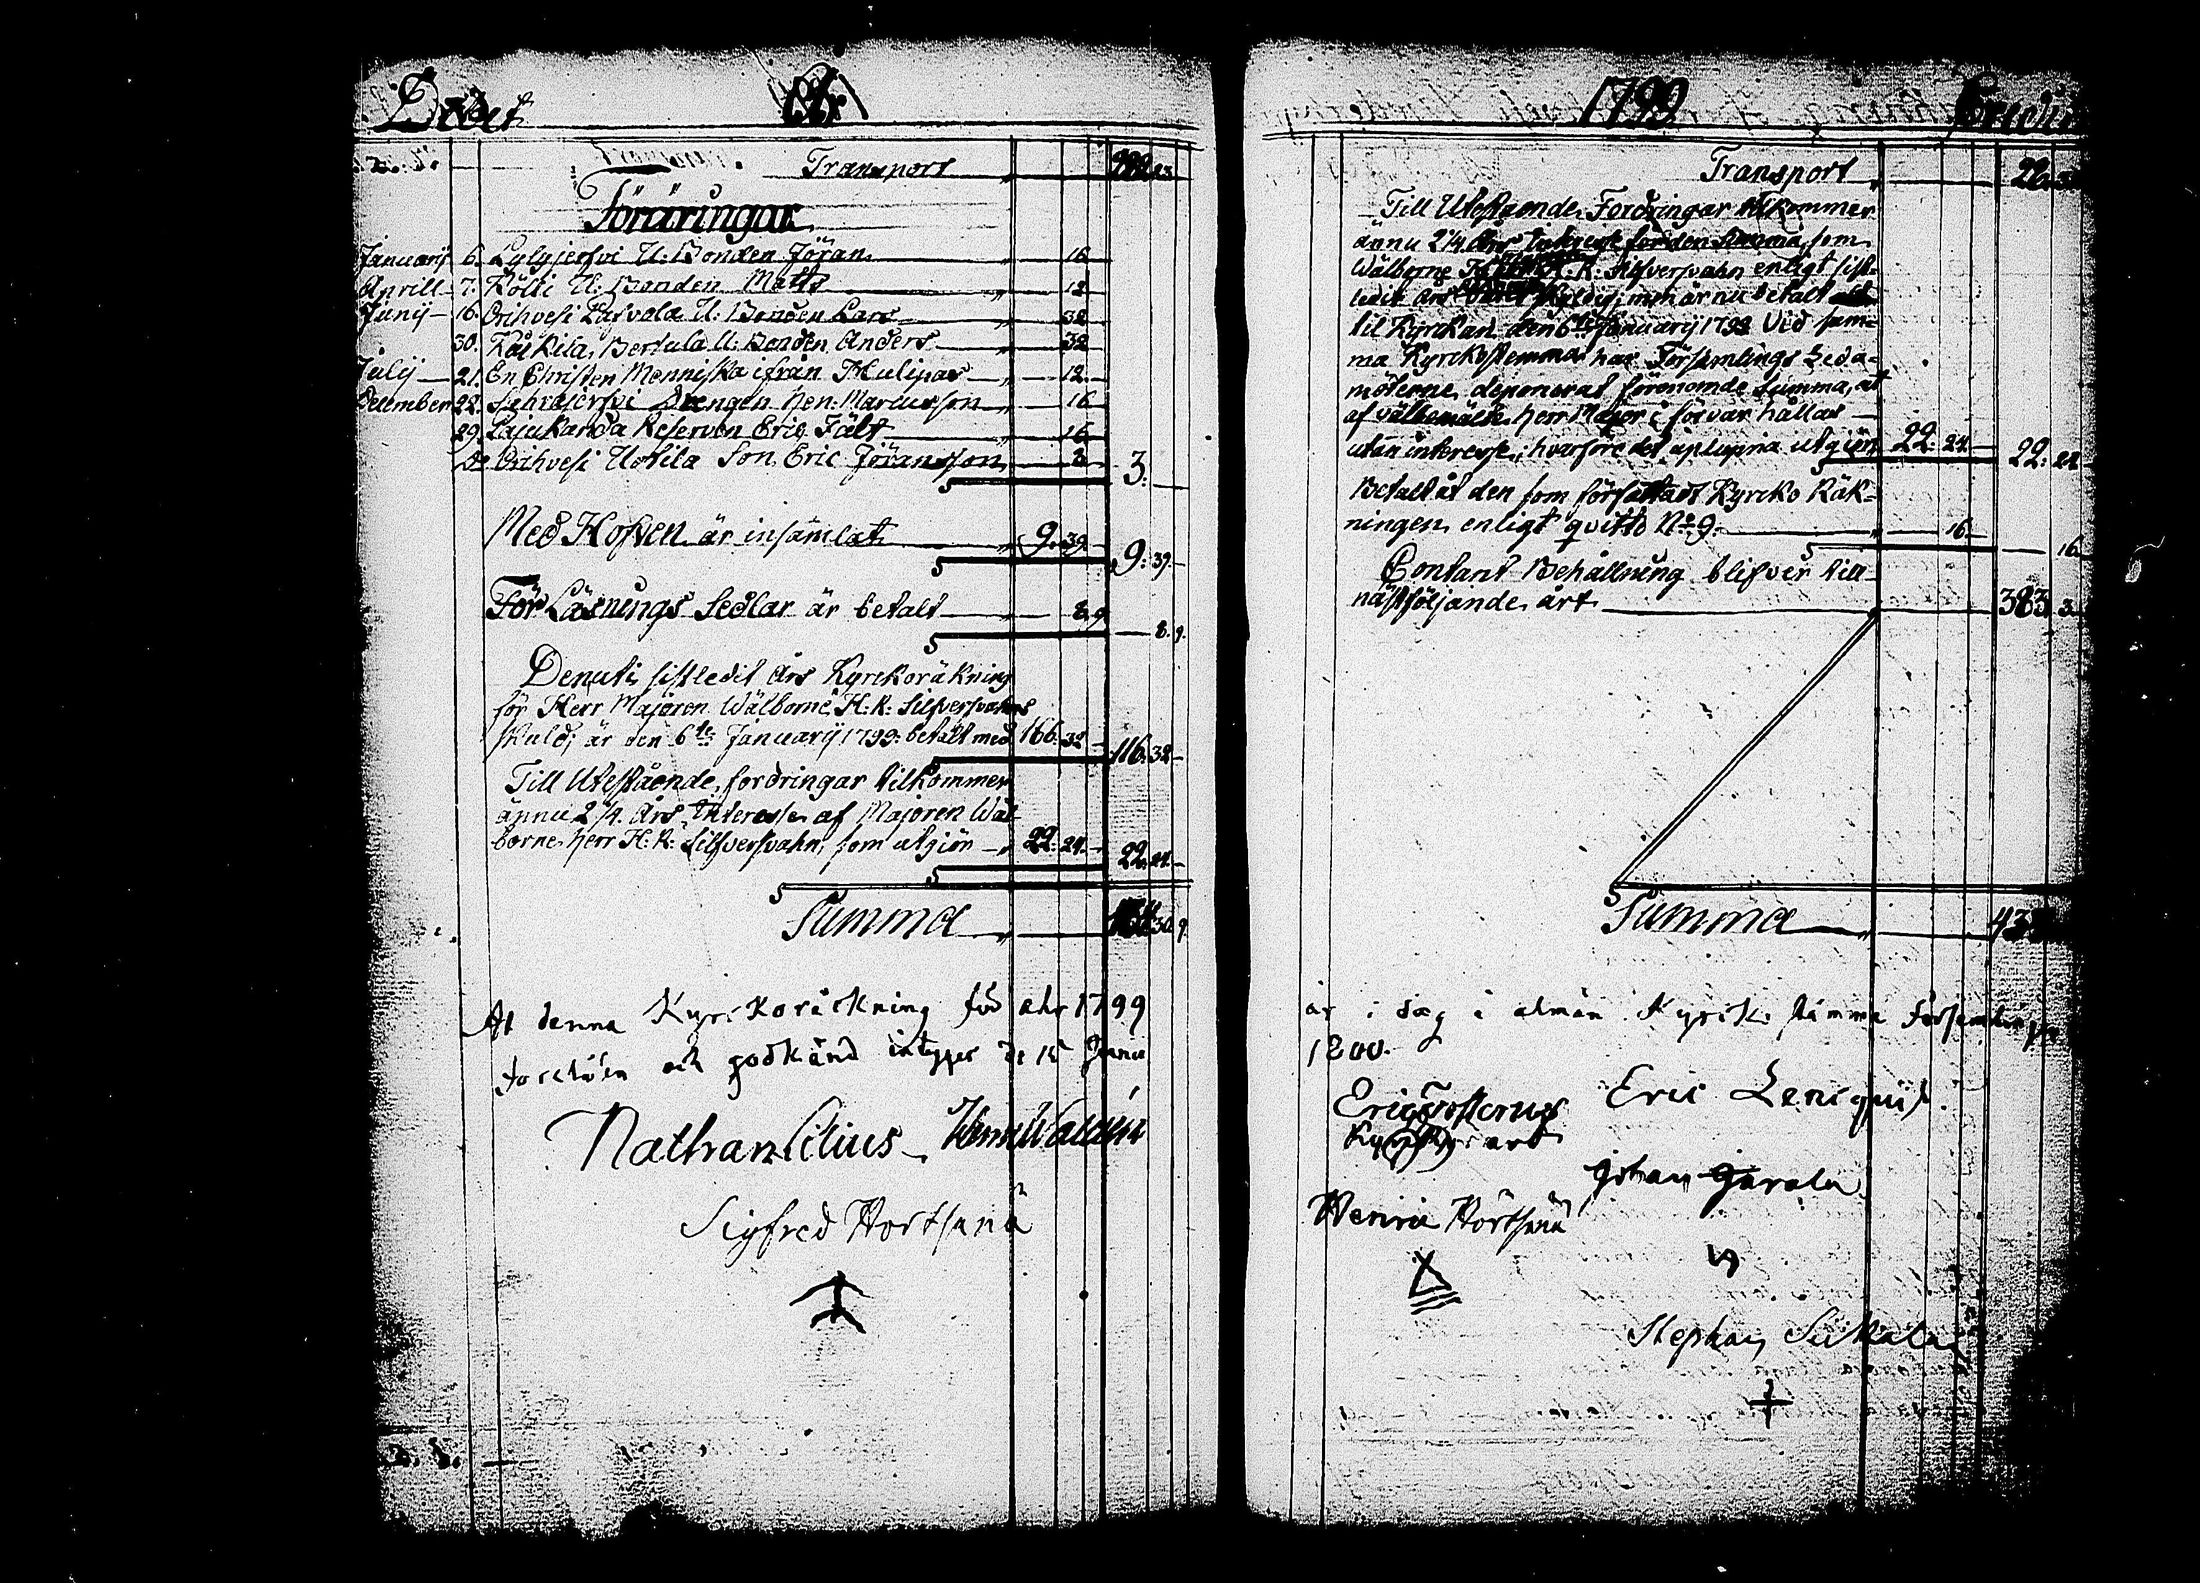 Debet År
Transport 23.
Föräringar
Januarij 6. Lylyjerfvi U: Bonden Jöran 16
Aprill 7. Kölli U: Bonden Matts 12
Junij 16. Orihvesi U: Bonden Lars 32
30. Bertula U: Bonden Anders 32
Julij 21. En Christen Menniska ifrån 12.
December 22. Drengen Hen: Marcusson 16
29. Lajukanda Reserven Eric Fält 16
De Orihvesi Uotila Son Eric Jöransson 8
3.
Med Hofven är insamlat 9. 39.
9: 39.
För Läsnings Sedlar är betalt 8. 9
8. 9.
Denuti sistledit Års Kyrckoräkning
för Herr Majoren Wälborne H: R: Silfversvahns
skuld, är den 6te Januarij 1799: betalt med 166. 32
116. 32
Till Utestående fordringar tilkommer
ännu 2 1/4. Års Interesse af Majoren Wäl-
borne Herr H: R: Silfversvahn, som utgiör 22: 24.
22. 24.
Summa 30. 9
At denna Kyrckoräckning för ahr 1799
och godkänd intygar de 15 Junii
Nathan Cilius
Sigfred Hortsana
1799 Credit
Transport 22.
Till Utestående Fordringar tilkommer
ännu 2 1/4 Års Interesse för den Summa, som
Wälborne H: R: Silfversvahn enligt sist-
ledit Års skyldig, men är nu betalt
til Kyrckan den 6te Januarij 1799. Vid sam-
ma Kyrckostemma har Församlings Leda-
möterne deponerat förenämde Summa, at
af välbemälte Herr Major i förvar hållas
utan interesse, hvarföre det uplupna utgiör 22: 24.
22: 24
Betalt åt den som författadt Kyrcko Räk-
ningen enligt qvitto No 9. 16.
16.
Contant Behållning blifver till
nästföljande årt 383 3
Summa 43
är i dag i alman Kyrck stämma
1800.
Eric Lenqvist
Johan Jarala
Henric Hörtsana
Stephan